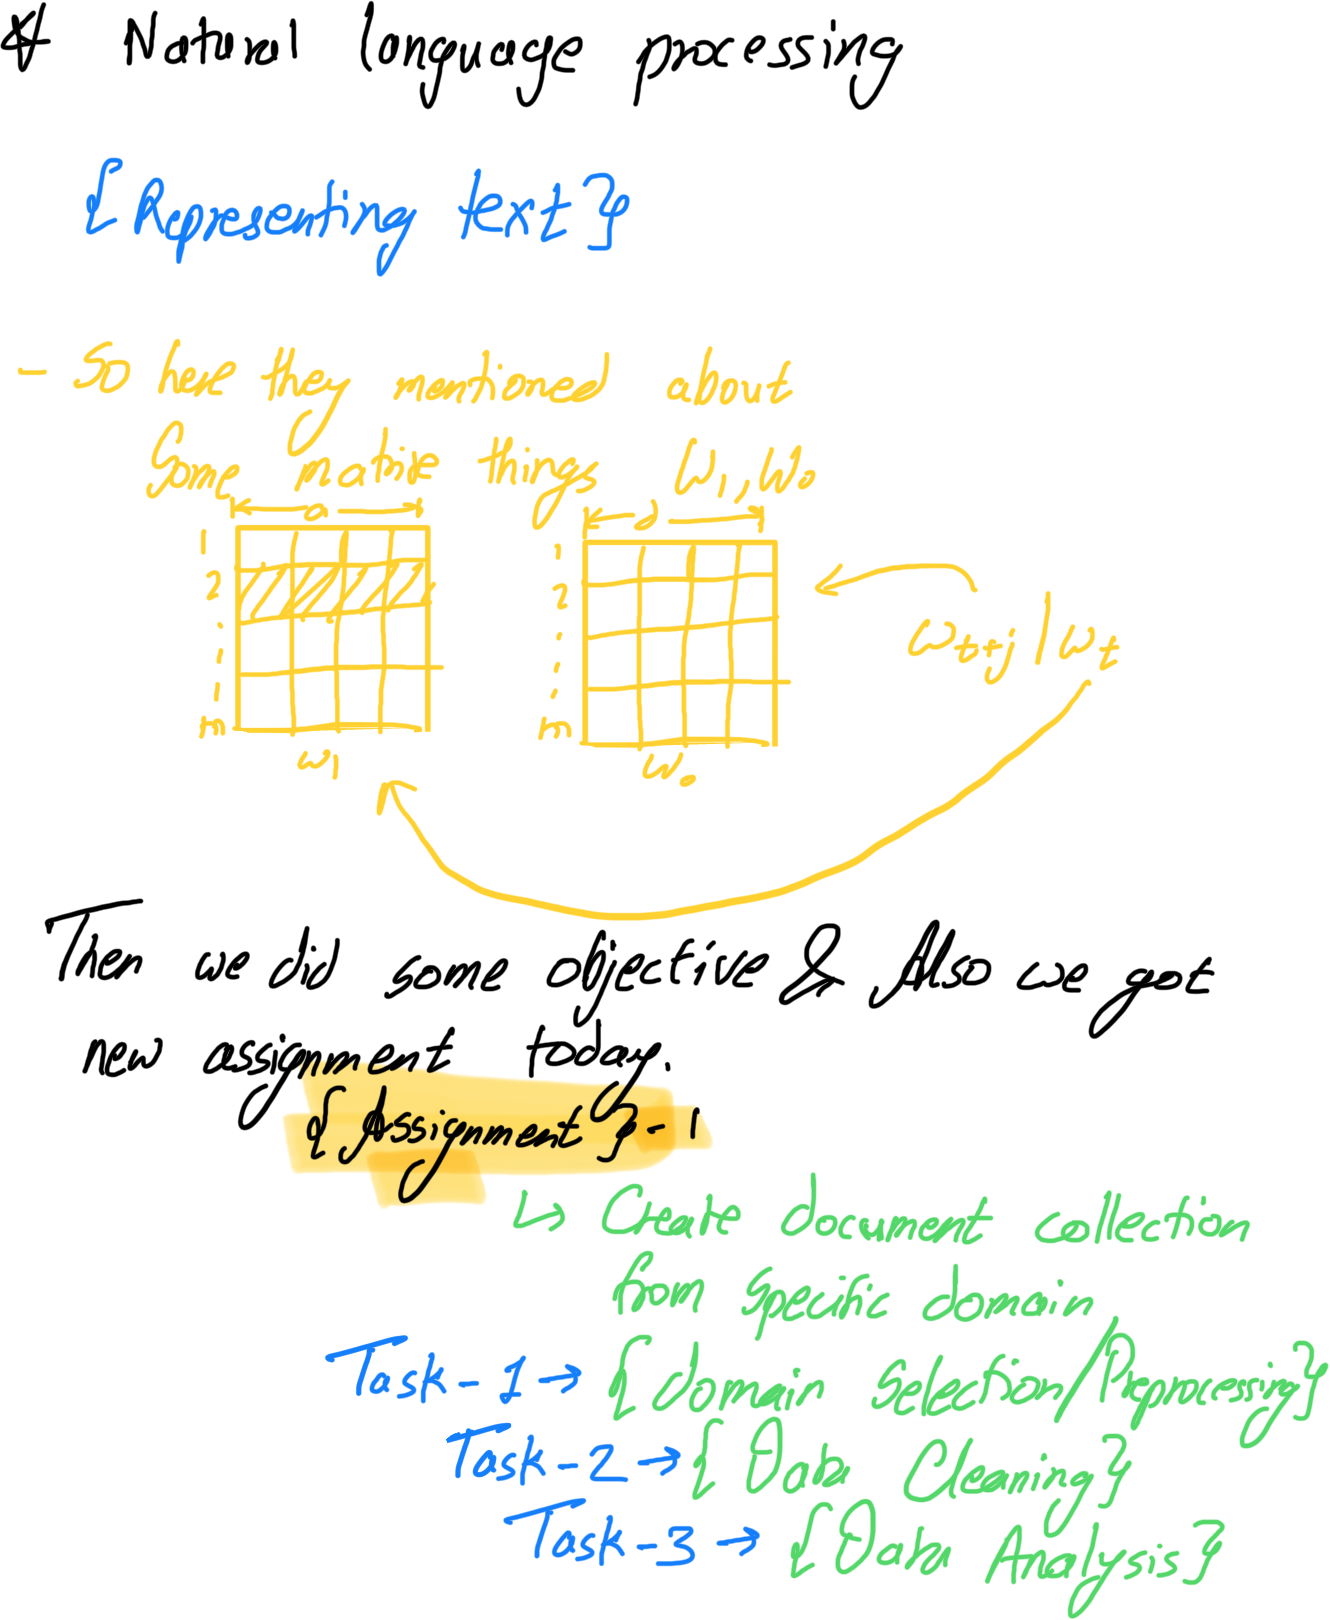 * Natural language processing
{Representing text}
- So here they mentioned about
Some matrix things W₁, W₀
a
d
1
2
m
W₁
1
2
m
W₀
Wt+j | Wt
Then we did some objective & Also we got
new assignment today.
{Assignment} - 1
↳ Create document collection
from specific domain
Task-1 → {domain Selection/Preprocessing}
Task-2 → {Data Cleaning}
Task-3 → {Data Analysis}